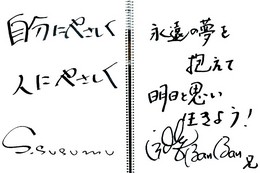 自分にやさしく
人にやさしく
S.susumu
永遠の夢を
抱えて
明日と思い
生きよう!
BanBan